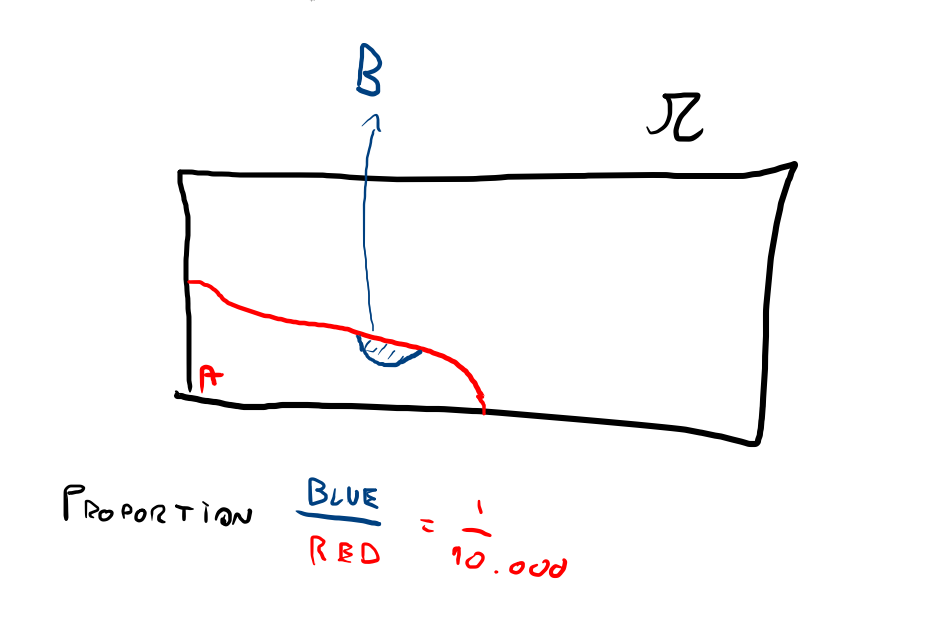 B
Ω
A
PROPORTION BLUE / RED = 1 / 10.000